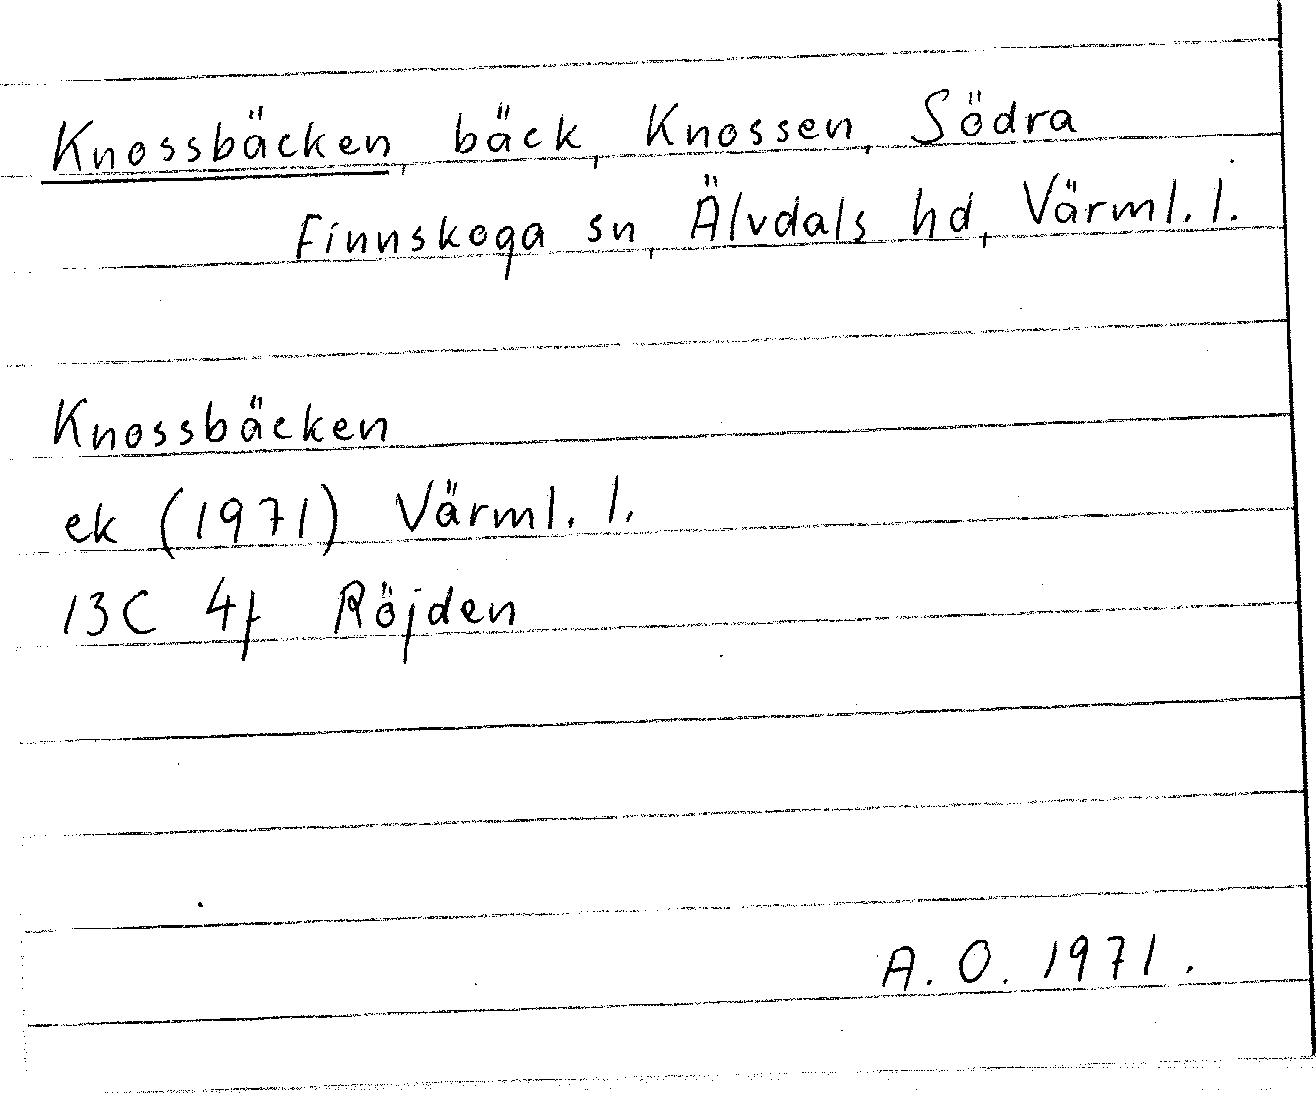 Knossbäcken, bäck, Knossen, Södra
Finnskoga sn, Älvdals hd, Värml. l.
Knossbäcken
ek (1971) Värml. l.
13C 4f Röjden
A. O. 1971.